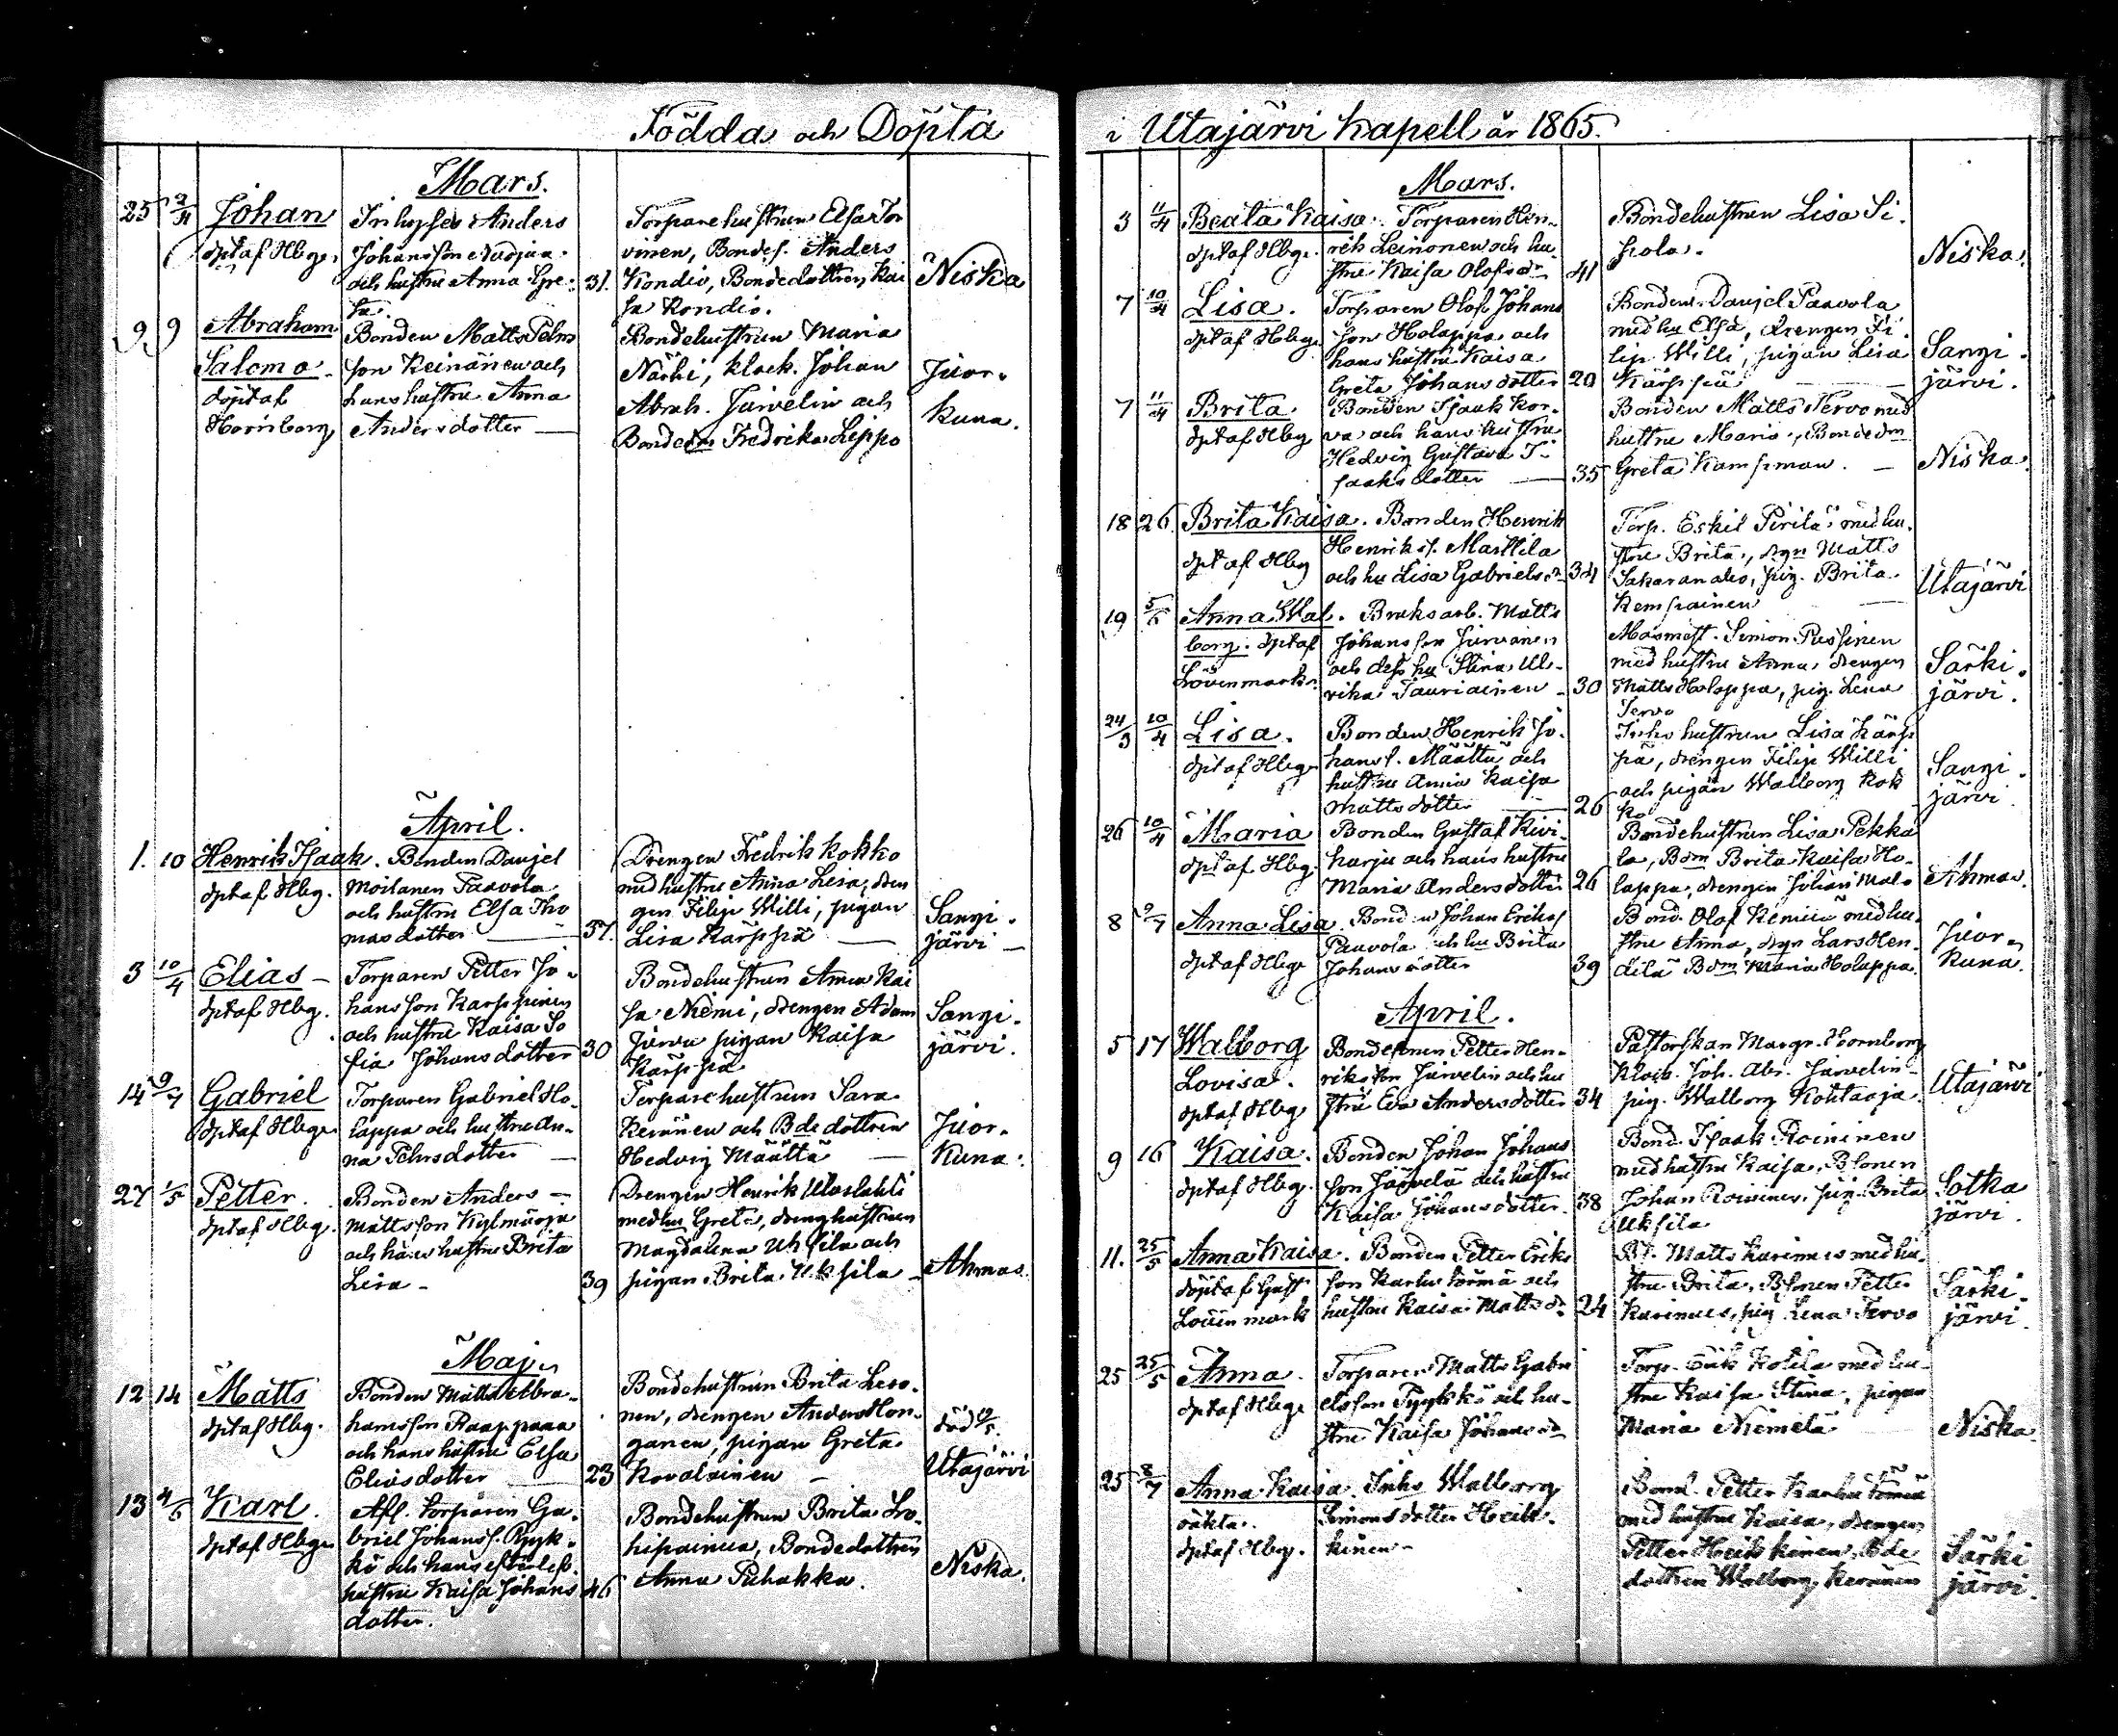 Födda och Döpta
Mars.
25 2/4 Johan
döpt af Hbg.
Inhyses Anders
Johansson
och hustru Anna Gre-
ta.
31.
Torparehustrun Elsa Tor
vinen, Bondes. Anders
Kondio, Bondedottren Kai
sa Kondio.
Niska
9 9 Abraham
Salomo.
döpt af
Hornborg
Bonden Matts Pehrs
son Keinänen och
hans hustru Anna
Andersdotter —
Bondehustrun Maria
Närhi, klock. Johan
Abrah. Jurvelin och
Bondedn Fredrika Leppo
Juor-
kuna.
April.
1. 10 Henrik Isaak.
döpt af Hbg.
Bonden Danjel
Moilanen Paavola
och hustru Elsa Tho
masdotter —
37.
Drengen Fredrik Kokko
med hustru Anna Lisa, dren
gen Filip Willi, pigan
Lisa Kärppä —
Sangi-
järvi —
3 10/4 Elias —
döpt af Hbg.
Torparen Petter Jo-
hansson Karppinen
och hustru Kaisa So
fia Johansdotter
30
Bondehustrun Anna Kai
sa Niemi, drengen Adam
Jurvu pigan Kaisa
Kärppä
Sangi-
järvi.
14 9/7 Gabriel
döpt af Hbg.
Torparen Gabriel Ho-
lappa och hustru An-
na Pehrsdotter —
Torparehustrun Sara
Keränen och Bdedottren
Hedvig Määttä —
Juor-
kuna.
27 1/5 Petter.
döpt af Hbg.
Bonden Anders —
Mattsson Kylmäoja
och hans hustru Brita
Lisa —
39
Drengen Henrik
med hu Greta, drenghustrun
Magdalena Uksila och
pigan Brita Uksila —
Ahmas
Maj.
12 14 Matts
döpt af Hbg.
Bonden Matts Abra-
hamsson Raappana
och hans hustru Elsa
Eliasdotter
23
Bondehustrun Brita Leso-
nen, drengen Anders Hon-
ganen, pigan Greta
Kovalainen —
död
Utajärvi
13 4/6 Karl.
döpt af Hbg.
Afl. torparen Ga-
briel Johanss. Pyyk-
kö och hans efterlefv.
hustru Kaisa Johans
dotter.
46
Bondehustrun Brita Lo-
hipainua, Bondedottren
Anna Puhakka.
Niska.
i Utajärvi Kapell år 1865.
Mars.
3 11/4 Beata Kaisa.
döpt af Hbg.
Torparen Hen-
rik Leinonen och hu-
stru Kaisa Olofsdr
41
Bondehustrun Lisa Si-
pola.
Niska.
7 10/4 Lisa.
döpt af Hbg.
Torparen Olof Johans
son Holappa och
hans hustru Kaisa
Greta Johansdotter
20
Bonden Danjel Paavola
med hu Elsa, drengen Fi
lip Willi, pigan Lisa
Kärppä —
Sangi-
järvi.
7 11/4 Brita.
döpt af Hbg
Bonden Isaak Kor-
va och hans hustru
Hedvig Gustava I-
saaksdotter —
35
Bonden Matts Tervo med
hustru Maria, Bondedm
Greta Kampman. —
Niska.
18 26 Brita Kaisa.
döpt af Hbg
Bonden Henrik
Henrikss. Marttila
och hu Lisa Gabrielsdr
34
Torp. Eskil Pirilä med hu-
stru Brita, drgn Matts
Sakaranaho, pig. Brita
Kempainen —
Utajärvi
19 5/6 Anna Wal-
borg. döpt af
Lövenmark.
Bruksarb. Matts
Johansson Jurvanen
och dess hu Stina Ul-
rika Tauriainen —
30
Masmäst. Simon Pussinen
med hustru Anna, drengen
Matts Holappa, pig. Lena
Tervo
Särki-
järvi.
24/3 10/4 Lisa.
döpt af Hbg.
Bonden Henrik Jo-
hanss. Määttä och
hustru Anna Kaisa
Mattsdotter —
26
Inhs hustrun Lisa Kärp
pä, drengen Filip Willi
och pigan Walborg Kok
ko
Sangi-
järvi.
26 10/4 Maria
döpt af Hbg.
Bonden Gustaf Kivi-
harju och hans hustru
Maria Andersdotter
26
Bondehustrun Lisa Pekka
la, Bdm Brita Kaisa Ho-
lappa, drengen Johan Malo
Ahmas.
8 9/7 Anna Lisa.
döpt af Hbg
Bonden Johan Erikss
Paavola och hu Brita
Johansdotter
39
Bond. Olof Keminen med hu-
stru Anna, drgn Lars Hen-
dilä Bdm Maria Holappa.
Juor-
kuna.
April.
5 17 Walborg
Lovisa.
döpt af Hbg
Bondesonen Petter Hen-
riksson Jurvelin och hu
stru Eva Andersdotter
34
Pastorskan Margr. Hornborg
Klock. Joh. Abr. Jurvelin
pig. Walborg Kohtaoja.
Utajärvi
9 16 Kaisa.
döpt af Hbg.
Bonden Johan Johans
son Järvelä och hustru
Kaisa Johansdotter
38
Bond. Isaak Roininen
med hustru Kaisa, Bsonen
Johan Roininen, pig. Brita
Uksila
Sotka
järvi.
11. 25/5 Anna Kaisa.
döpt af Gust
Lövenmark
Bonden Petter Eriks
son Karhutörmä och
hustru Kaisa Mattsdr
24
Bd. Matts Kurimus med hu-
stru Brita, Bsonen Petter
Kurimus, pig. Lena Tervo
Särki-
järvi.
25 25/5 Anna.
döpt af Hbg
Torparen Matts Gabri
elsson Pyykkö och hu-
stru Kaisa Johansdr
Torp. Erik Kotila med hu-
stru Kaisa Stina, pigan
Maria Niemelä
Niska.
25 8/7 Anna Kaisa.
oäkta.
döpt af Hbg.
Inhs Walborg
Simonsdotter Heik-
kinen —
Bond. Petter Karhutörmä
med hustru Kaisa, drengen
Petter Heikkinen, Bde
dottren Walborg Keränen
Särki
järvi.